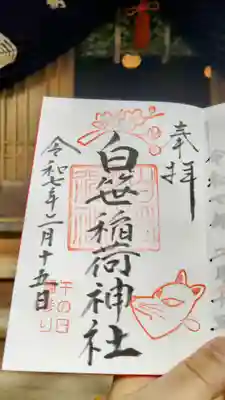 奉拝
白笹稲荷神社
令和七年二月十五日
午の日